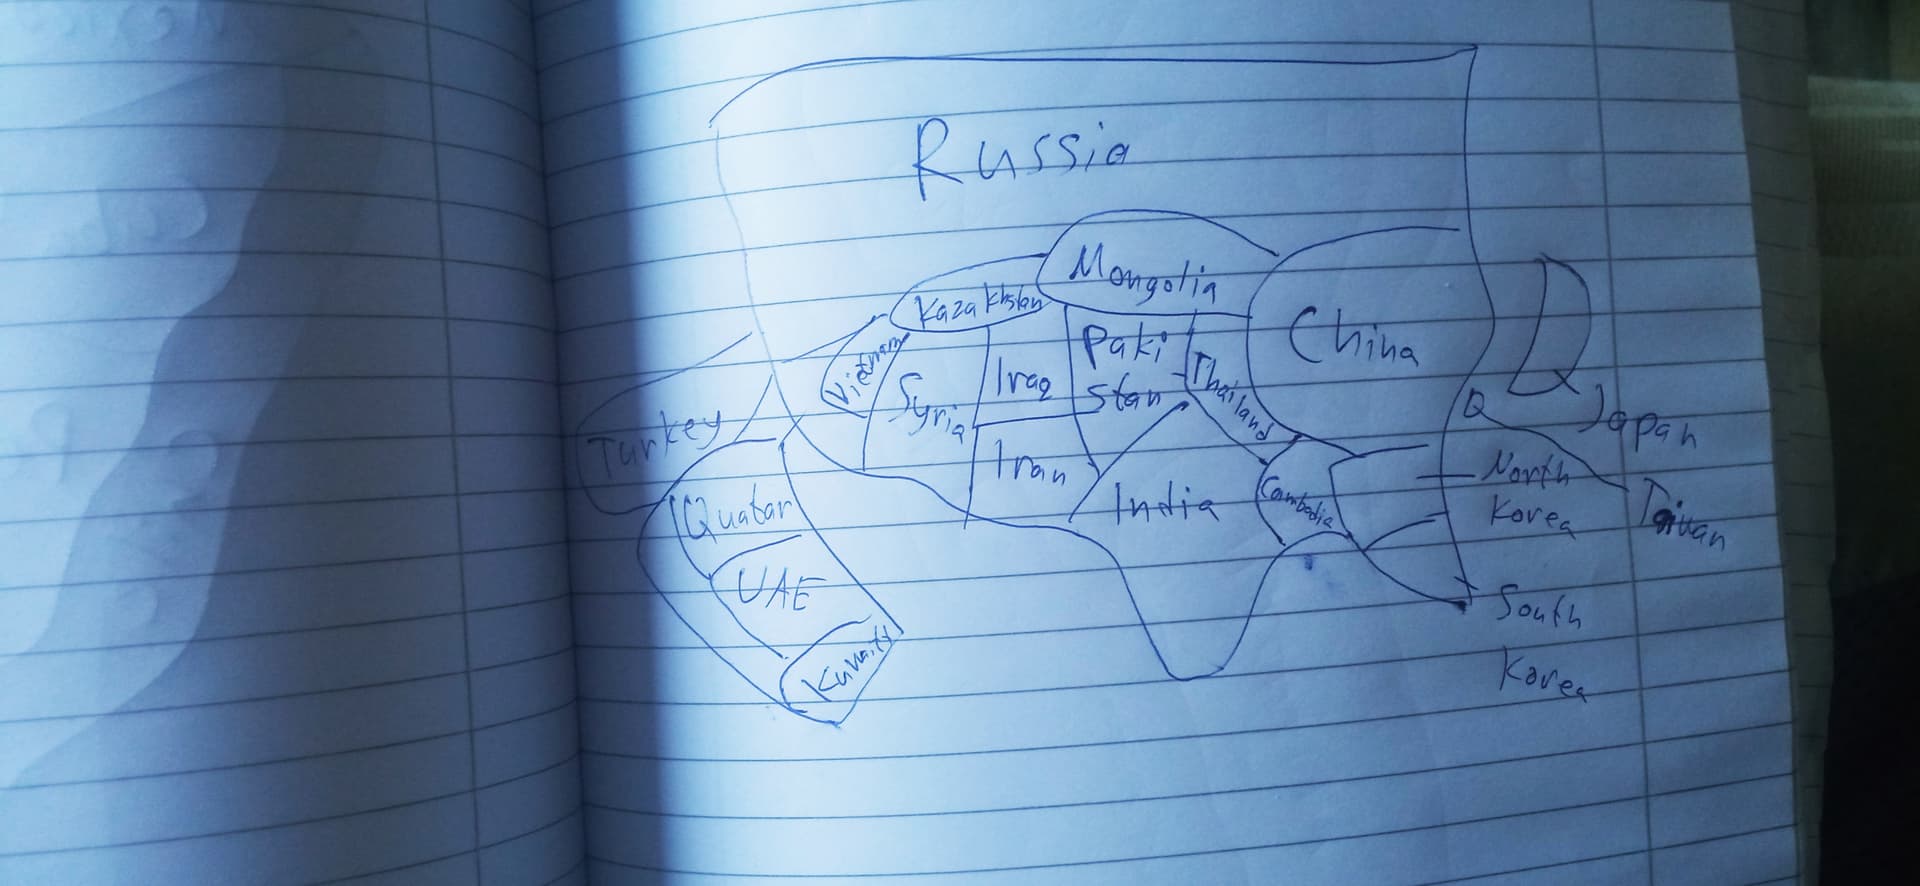 Russia
Mongolia
Kazakhstan
China
Paki
stan
Vietnam
Iraq
Thailand
Syria
Japan
Turkey
Iran
North
Korea
Cambodia
India
Quatar
Taiwan
UAE
South
Korea
Kuwait